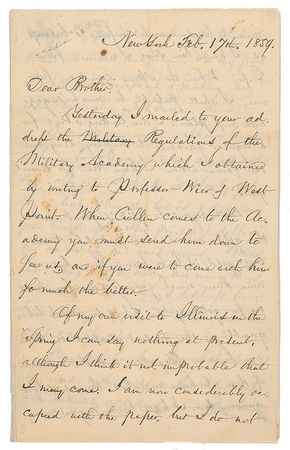 New York Feb. 17th, 1859.
Dear Brother.
Yesterday I mailed to your ad-
dress the Military Regulations of the
Military Academy which I obtained
by writing to Professor Wier of West
Point. When Cullen comes to the Ac-
ademy you must send him down to
see us, and if you were to come with him
so much the better.
Of my our visit to Illinois in the
Spring I can say nothing at present,
although I think it not improbable that
I may come. I am now considerably oc-
cupied with the paper, but I do not